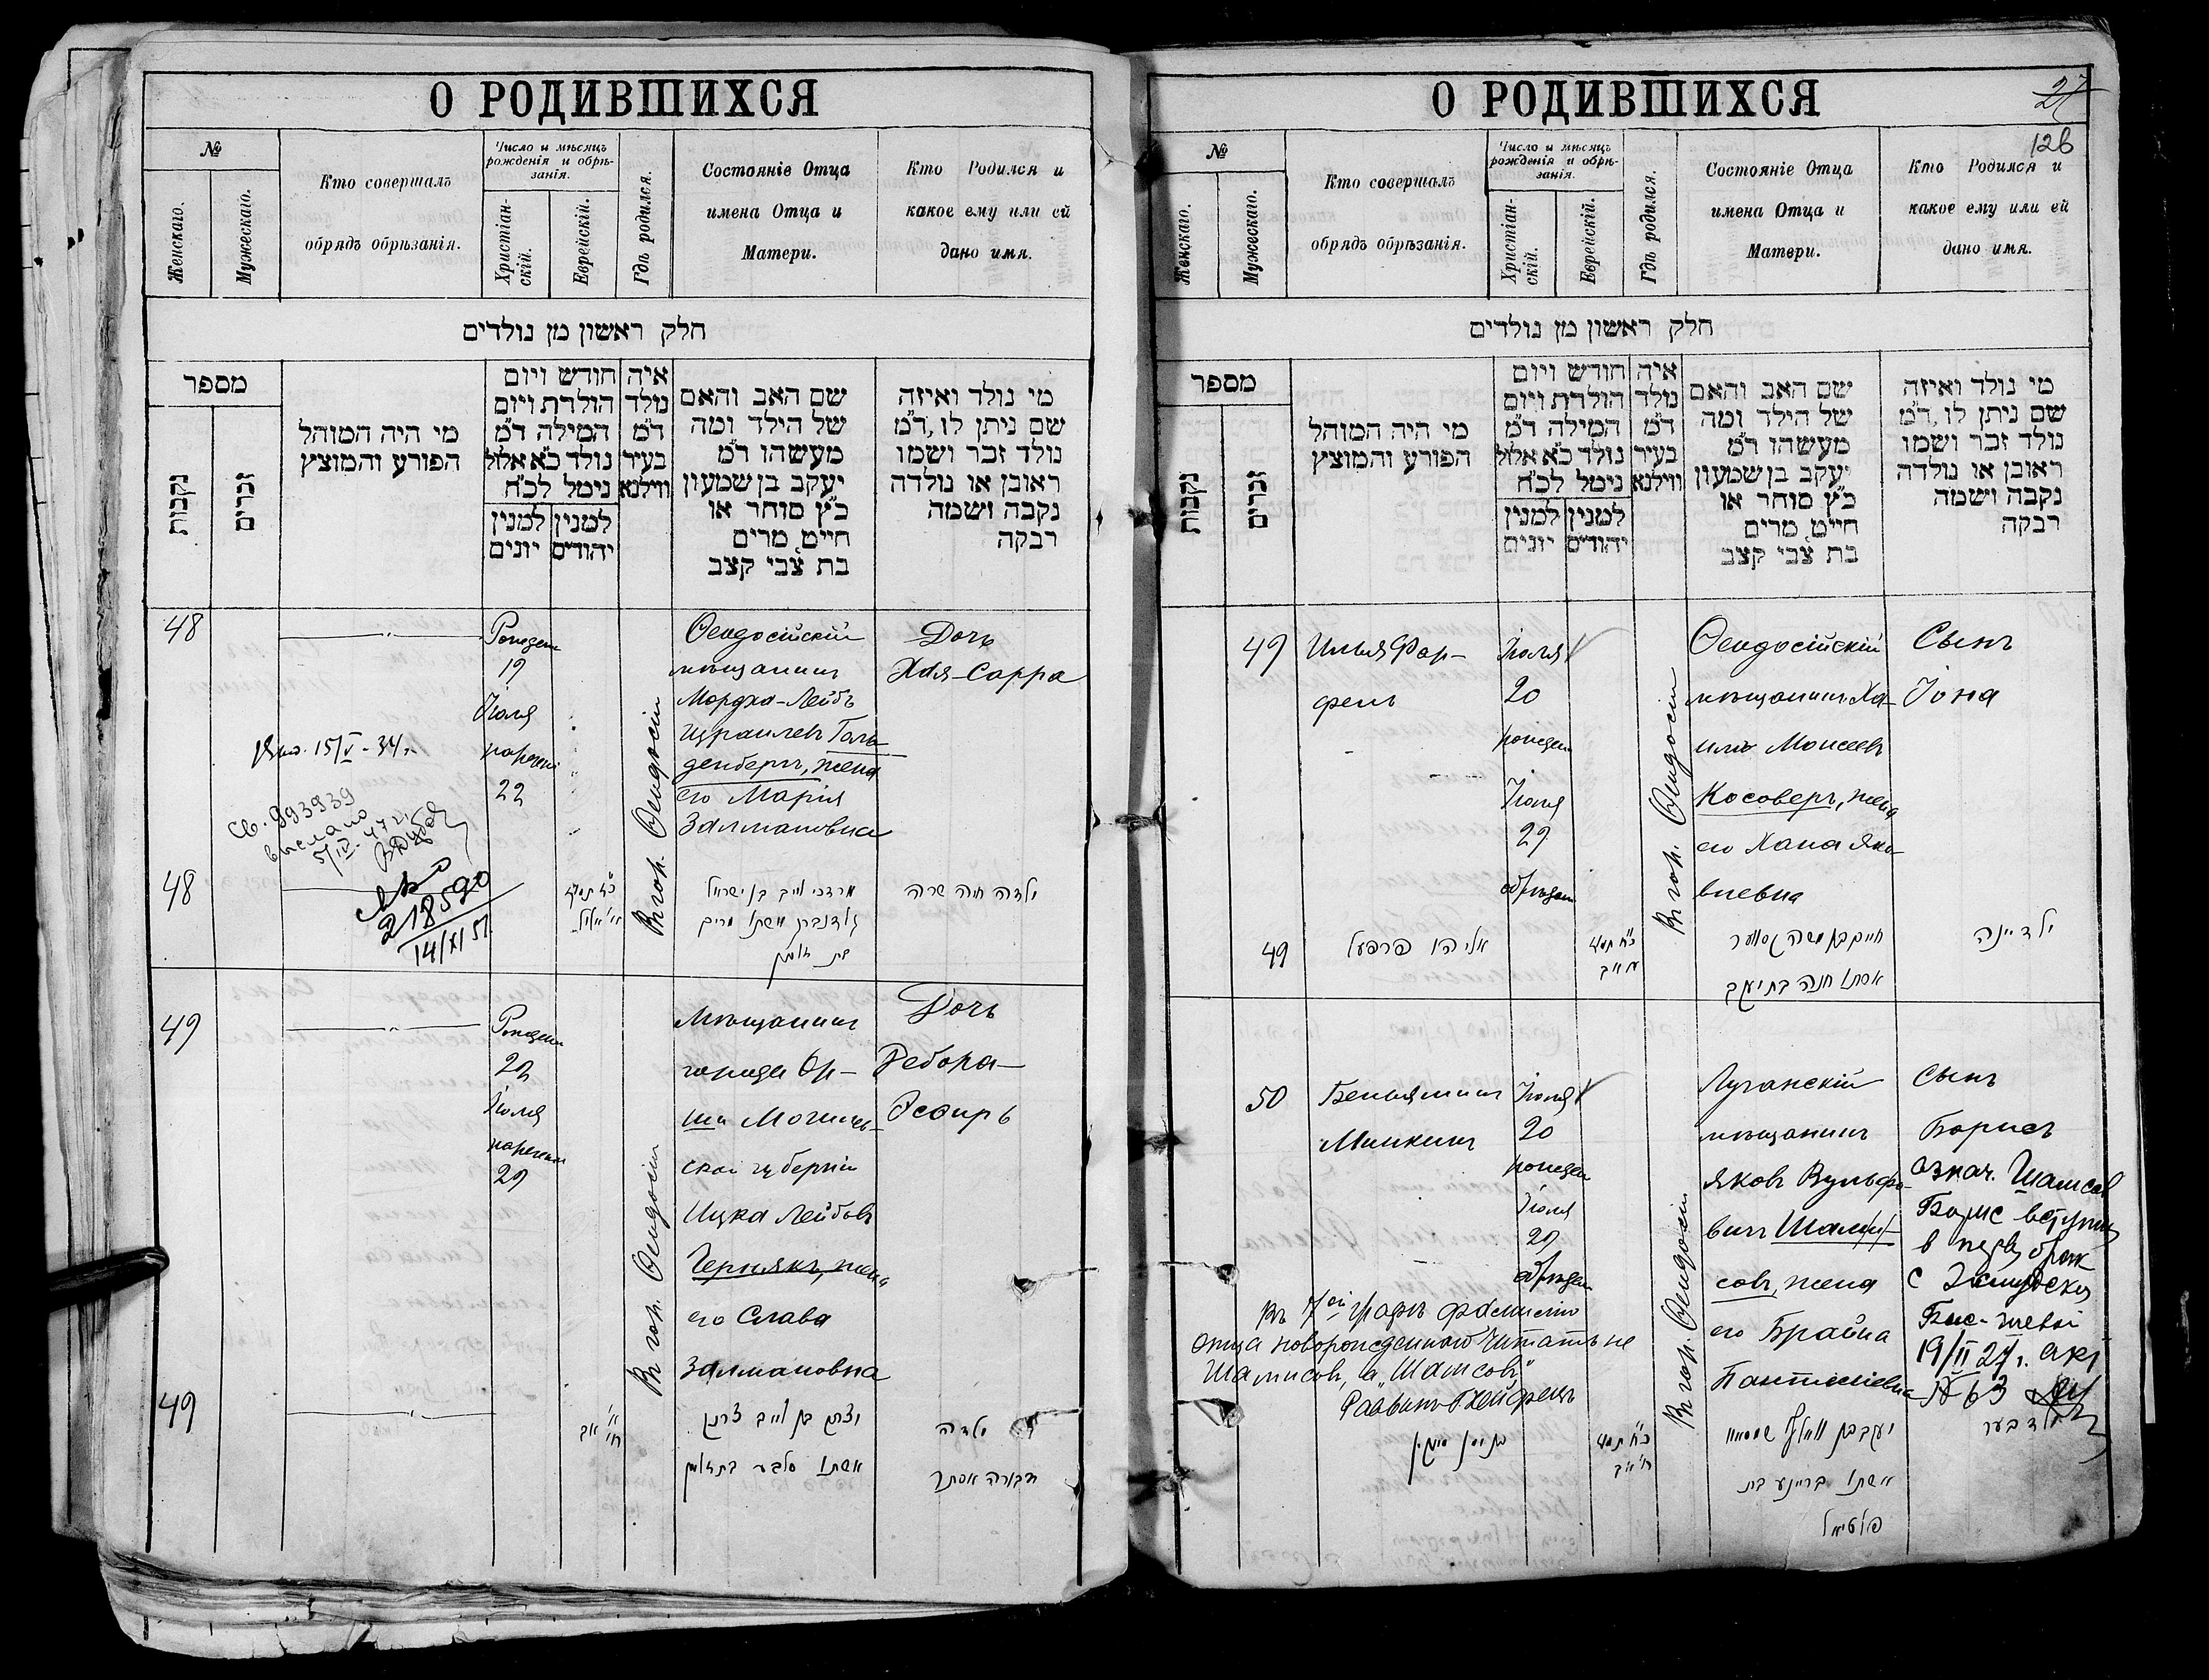 О РОДИВШИХСЯ
№
Женскаго.
Мужескаго.
Кто совершалъ
обрядъ обрѣзанія.
Число и мѣсяцъ
рожденія и обрѣ-
занія.
Христіан-
скій.
Еврейскій.
Гдѣ родился.
Состояніе Отца
имена Отца и
Матери.
Кто Родился и
какое ему или ей
дано имя.
חלק ראשון מן נולדים
מספר
נקבות
זכרים
מי היה המוהל
הפורע והמוצץ
חודש ויום
הולדת ויום
המילה ד״מ
נולד כ״א אלול
נימל לכ״ח
למנין יונים
למנין יהודים
איה
נולד
ד״מ
בעיר
ווילנא
שם האב והאם
של הילד ומה
מעשהו ד״מ
יעקב בן שמעון
כ״ץ סוחר או
חייט, מרים
בת צבי קצב
מי נולד ואיזה
שם ניתן לו, ד״מ
נולד זכר ושמו
ראובן או נולדה
נקבה ושמה
רבקה
48
19
Іюля
22
Въ гор. Ѳеодосіи
Ѳеодосійскій
мѣщанинъ
Мордха-Лейбъ
Израилевъ Голь-
денбергъ, жена
его Марія
Залмановна
Дочь
Хая-Сарра
15/V - 34 г.
св. 993939
выслано
218590
14/XI 51.
48
מרדכי לייב בן ישראל
גאלדנברג אשתו מרים
בת זלמן
ילדה חיה שרה
49
22
Іюля
29
Въ гор. Ѳеодосіи
Мѣщанинъ
города Ор-
ши Могилев-
ской губерніи
Ицка Лейбовъ
Чернякъ, жена
его Слава
Залмановна
Дочь
Дебора-
Эсѳирь
49
אשתו סלבע בת זלמן
ילדה
דבורה אסתר
О РОДИВШИХСЯ
27
126
№
Женскаго.
Мужескаго.
Кто совершалъ
обрядъ обрѣзанія.
Число и мѣсяцъ
рожденія и обрѣ-
занія.
Христіан-
скій.
Еврейскій.
Гдѣ родился.
Состояніе Отца
имена Отца и
Матери.
Кто Родился и
какое ему или ей
дано имя.
חלק ראשון מן נולדים
מספר
נקבות
זכרים
מי היה המוהל
הפורע והמוצץ
חודש ויום
הולדת ויום
המילה ד״מ
נולד כ״א אלול
נימל לכ״ח
למנין יונים
למנין יהודים
איה
נולד
ד״מ
בעיר
ווילנא
שם האב והאם
של הילד ומה
מעשהו ד״מ
יעקב בן שמעון
כ״ץ סוחר או
חייט, מרים
בת צבי קצב
מי נולד ואיזה
שם ניתן לו, ד״מ
נולד זכר ושמו
ראובן או נולדה
נקבה ושמה
רבקה
49
Илья Фар-
фель
Іюля
20
рожден
Іюля
27
обрѣзан
Въ гор. Ѳеодосіи
Ѳеодосійскій
мѣщанинъ Ха-
имъ Моисеевъ
Косоверъ, жена
его Хана Яко-
влевна
Сынъ
Іона
49
אליהו פרפעל
אשתו חנה בת יעקב
ילד יונה
50
Беньяминъ
Минкинъ
Іюля
20
рожден
Іюля
обрѣзан
Въ гор. Ѳеодосіи
Луганскій
мѣщанинъ
Яковъ Вульфо-
вичъ Шами-
совъ, жена
его Брайна
Сынъ
Борисъ
Борис вступил
в перв. брак
с
19/II 27 г. акт
№ 63
Въ 7ой графѣ фамилію
отца новорожденнаго читать не
Шамисов, а „Шамсовъ"
Раввинъ
אשתו בריינע בת